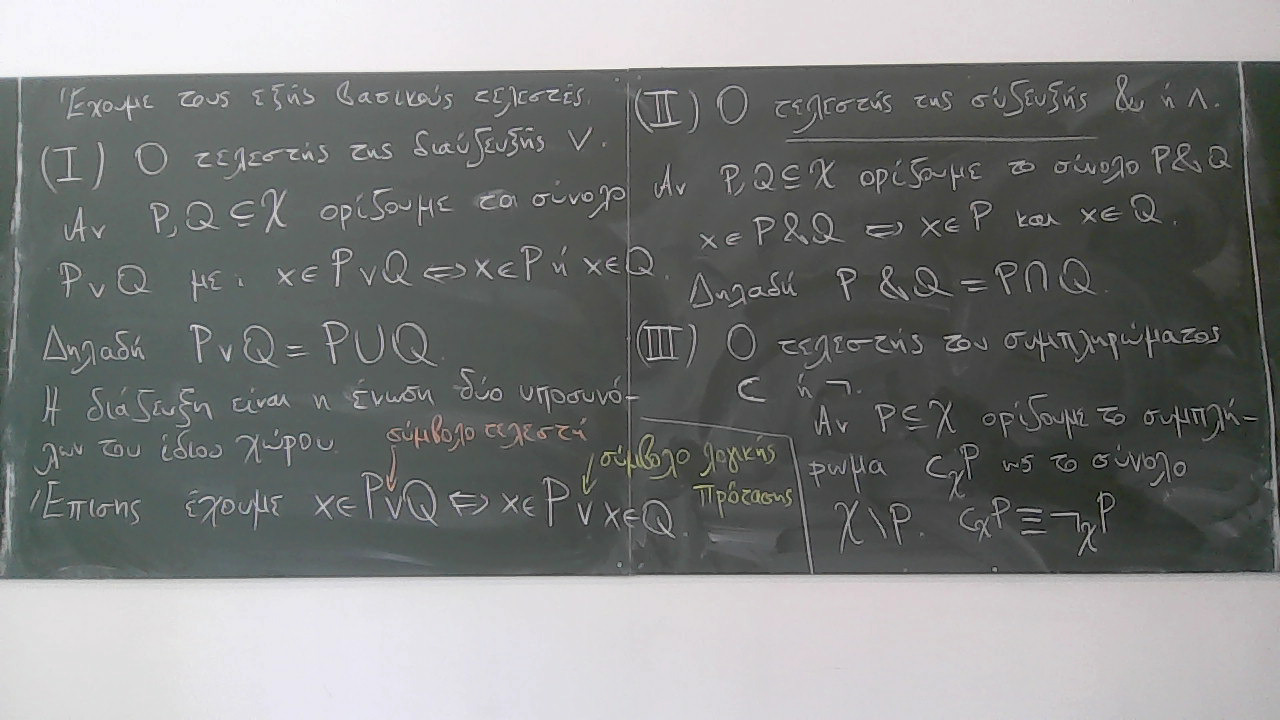 Έχουμε τους εξής βασικούς τελεστές.
(I) Ο τελεστής της διαύζευξης ∨.
Αν P,Q ⊆ X ορίζουμε το σύνολο
P∨Q με: x∈P∨Q ⟺ x∈P ή x∈Q.
Δηλαδή P∨Q = P∪Q.
Η διάζευξη είναι η ένωση δύο υποσυνό-
λων του ίδιου χώρου.
σύμβολο τελεστή
Έπισης έχουμε x∈P∨Q ⟺ x∈P ∨ x∈Q.
σύμβολο λογικής
πρότασης
(II) Ο τελεστής της σύζευξής & ή ∧.
Αν P,Q⊆X ορίζουμε το σύνολο P&Q
x∈P&Q ⟺ x∈P και x∈Q.
Δηλαδή P&Q = P∩Q.
(III) Ο τελεστής του συμπληρώματος
C ή ¬.
Αν P⊆X ορίζουμε το συμπλή-
ρωμα C_X P ως το σύνολο
X\P. C_X P ≡ ¬_X P